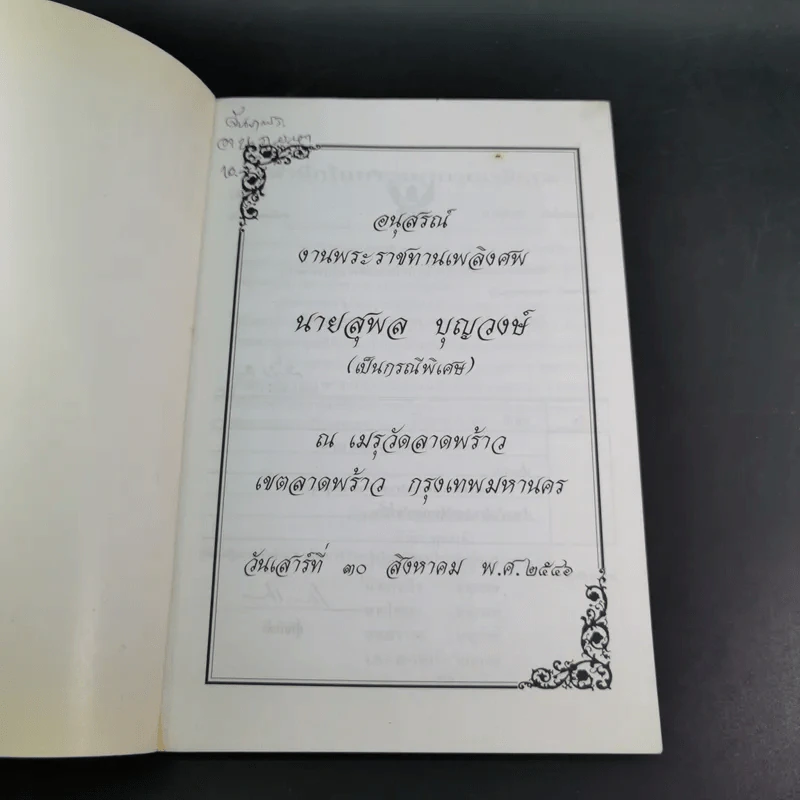 อนุสรณ์
งานพระราชทานเพลิงศพ
นายสุพล บุญวงษ์
(เป็นกรณีพิเศษ)
ณ เมรุวัดลาดพร้าว
เขตลาดพร้าว กรุงเทพมหานคร
วันเสาร์ที่ ๓๐ สิงหาคม พ.ศ. ๒๕๔๖